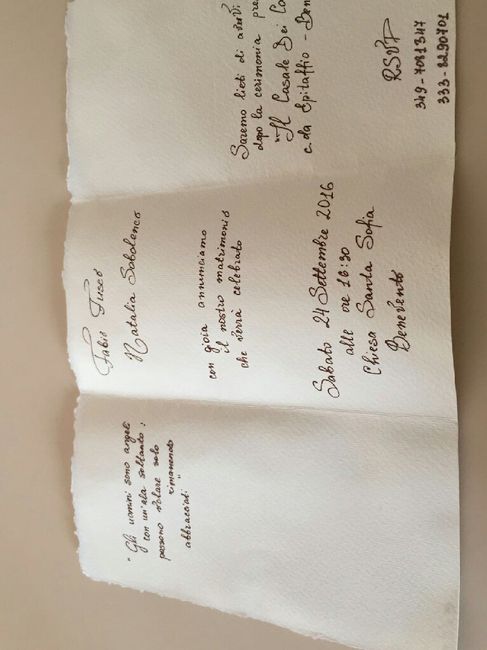 "Gli uomini sono angeli
con un'ala soltanto;
possono volare solo
rimanendo
abbracciati"
Fabio Fusco
Natalia Sobolenco
con gioia annunciamo
il nostro matrimonio
che verrà celebrato
Sabato 24 Settembre 2016
alle ore 16:30
Chiesa Santa Sofia
Benevento
Saremo lieti di
dopo la cerimonia
"Il Casale Dei
c.da Epitaffio -
RSVP
349-7081347
333-8290701